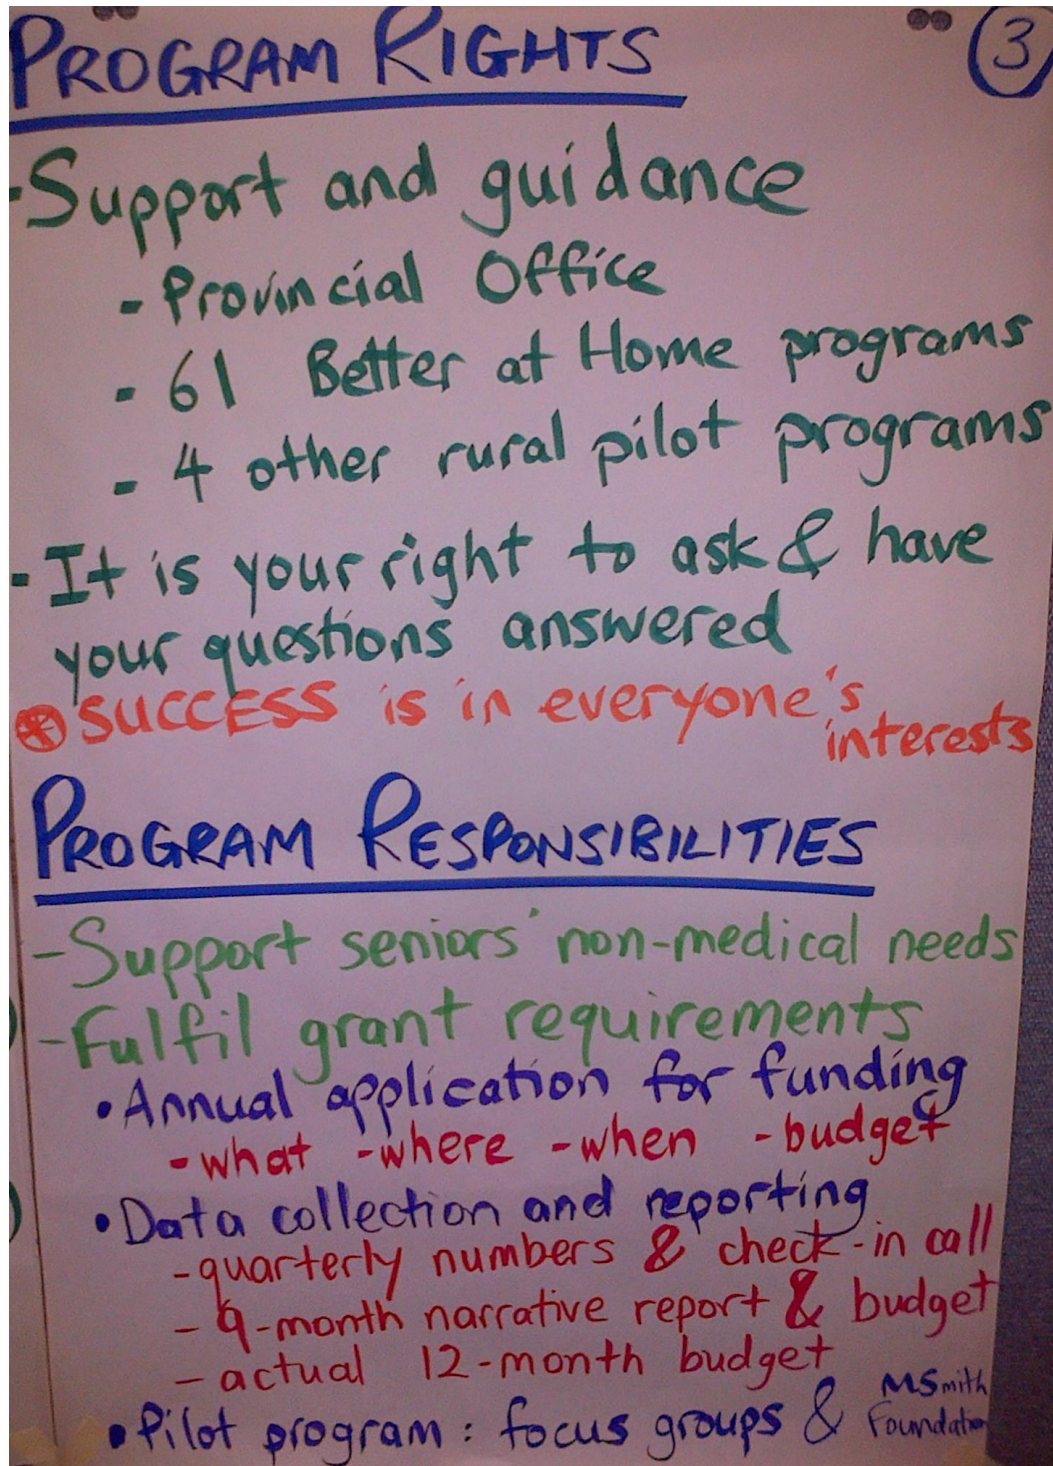 PROGRAM RIGHTS
3
- Support and guidance
- Provincial Office
- 61 Better at Home programs
- 4 other rural pilot programs
- It is your right to ask & have
your questions answered
SUCCESS is in everyone's
interests
PROGRAM RESPONSIBILITIES
- Support seniors' non-medical needs
- Fulfil grant requirements
• Annual application for funding
- what - where - when - budget
• Data collection and reporting
- quarterly numbers & check-in call
- 9-month narrative report & budget
- actual 12-month budget
• Pilot program: focus groups & MSmith
Foundation